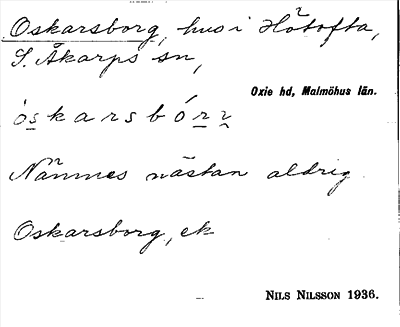 Oskarsborg, hus i Hötofta,
S. Åkarps sn,
Oxie hd, Malmöhus län.
òskarsbórv
Nämnes nästan aldrig
Oskarsborg, ek
NILS NILSSON 1936.